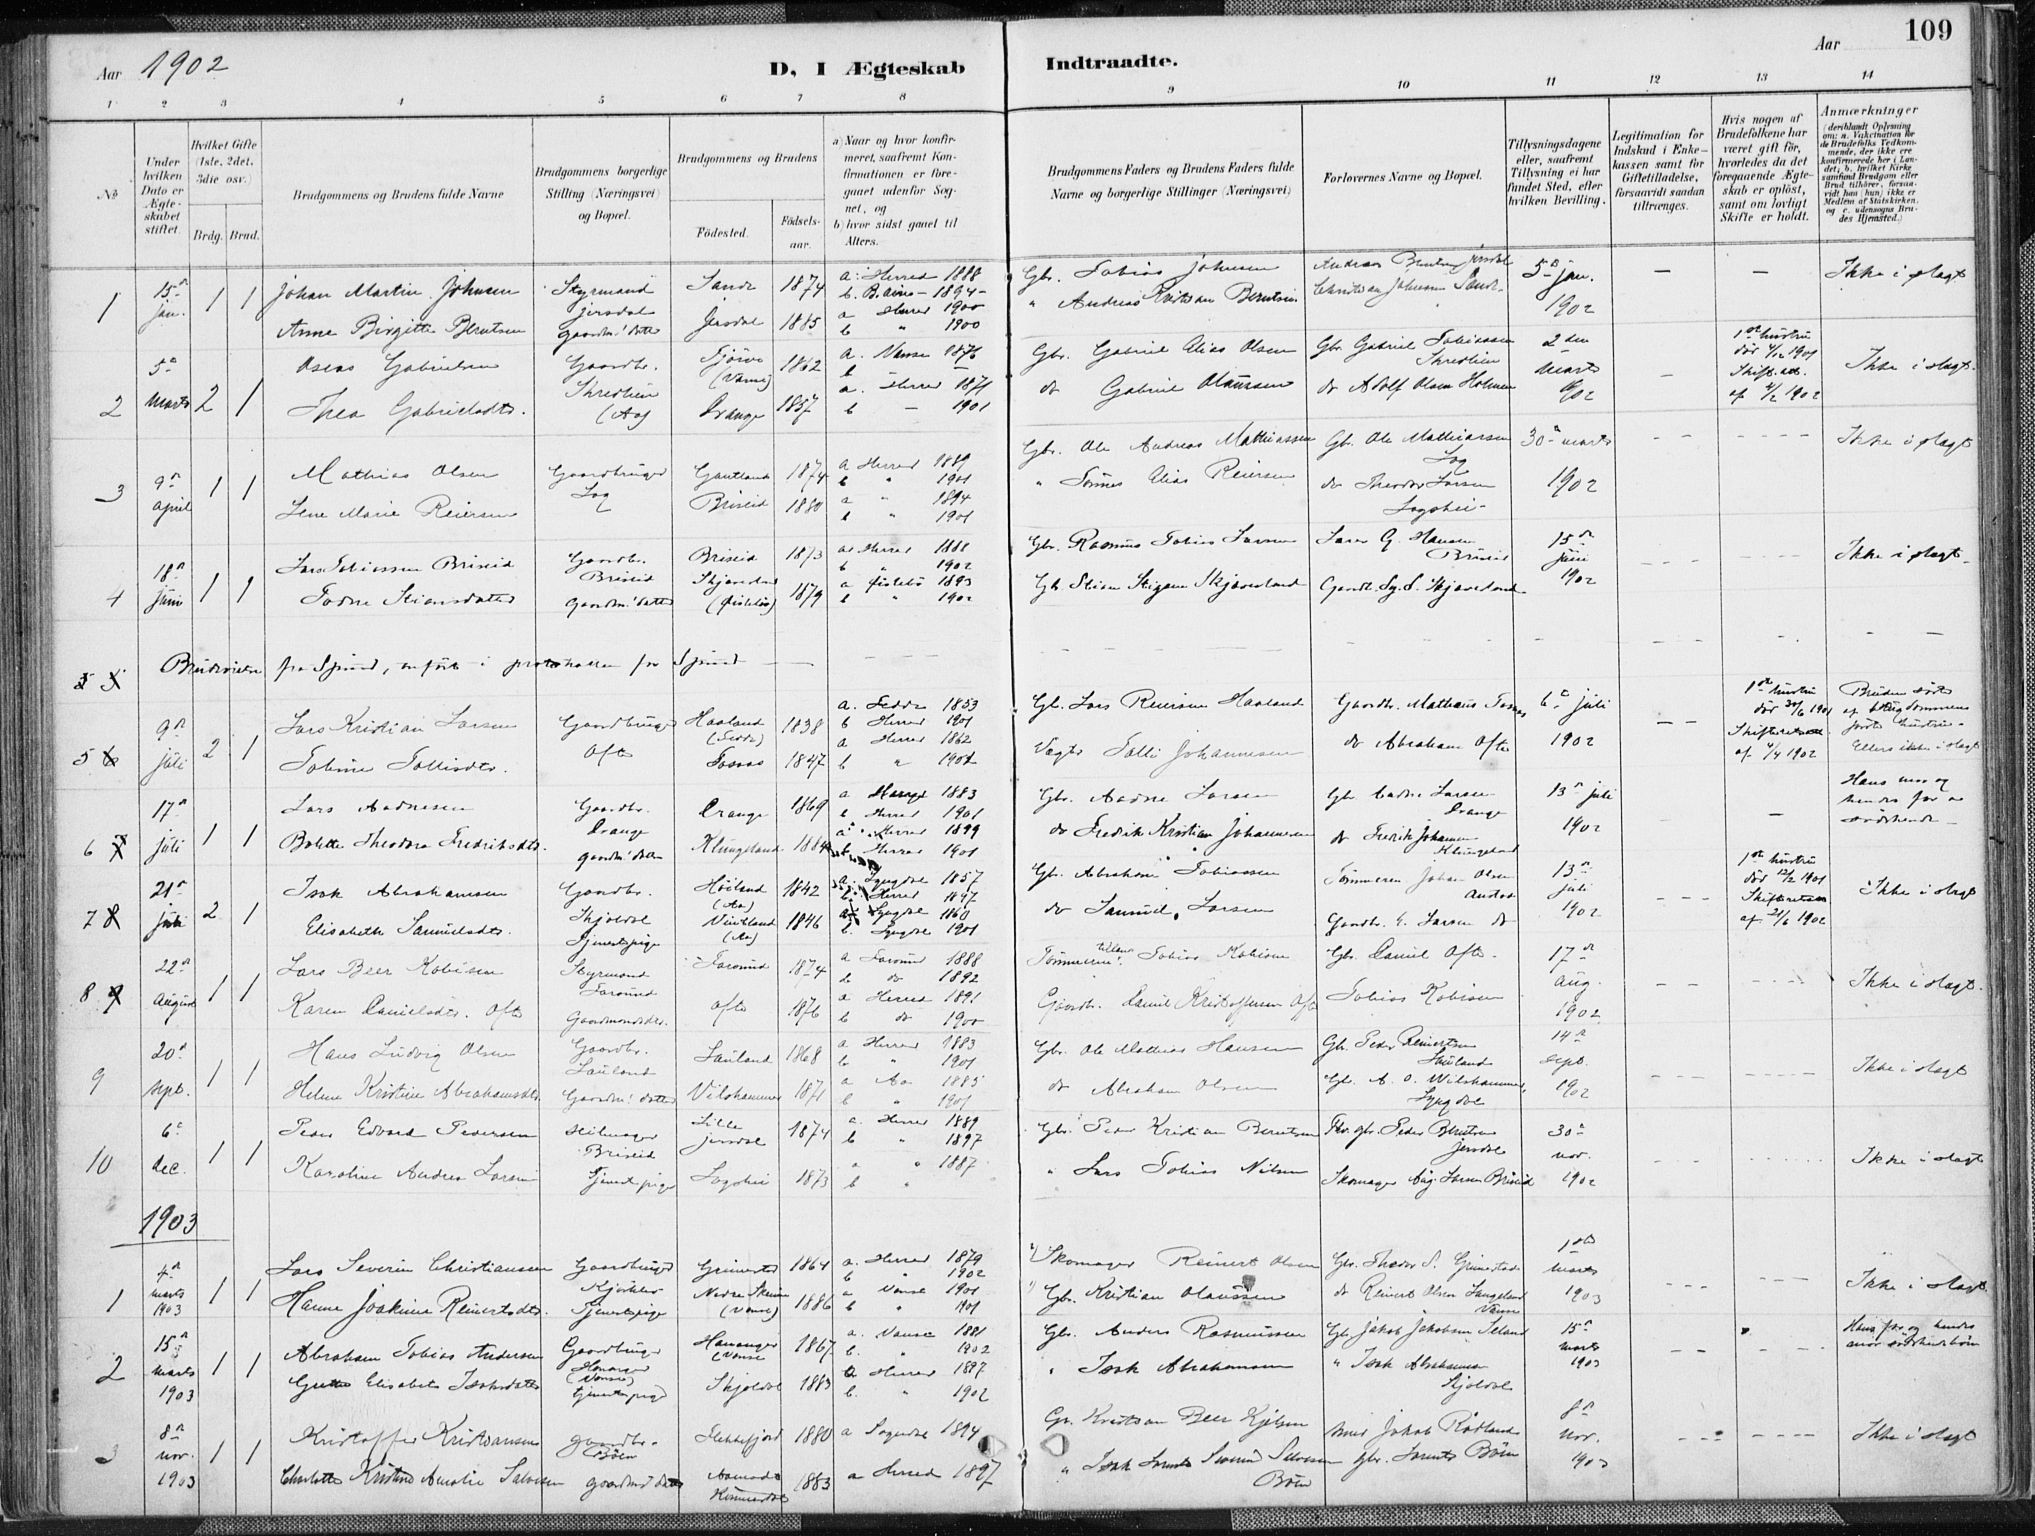 Aar 1902
D, I Ægteskab Indtraadte.
Aar 109
1 2 3 4 5 6 7 8 9 10 11 12 13 14
No
Under hvilken Dato er Ægteskabet stiftet.
Hvilket Gifte (1ste, 2det, 3die osv.)
Brdg. Brud.
Brudgommens og Brudens fulde Navne
Brudgommens borgerlige Stilling (Næringsvei) og Bopæl.
Brudgommens og Brudens
Fødested. Fødselsaar.
a) Naar og hvor konfirmeret, saafremt Konfirmationen er foregaaet udenfor Sognet, og
b) hvor sidst gaaet til Alters.
Brudgommens Faders og Brudens Faders fulde Navne og borgerlige Stillinger (Næringsvei)
Forlovernes Navne og Bopæl.
Tillysningsdagene eller, saafremt Tillysning ei har fundet Sted, efter hvilken Bevilling.
Legitimation for Indskud i Enkekassen samt for Giftetilladelse, forsaavidt saadan tiltrænges.
Hvis nogen af Brudefolkene har været gift før, hvorledes da det foregaaende Ægteskab er opløst, samt om lovligt Skifte er holdt.
Anmærkninger
(deriblandt Oplysning om: a. Vakcination for de Brudefolks Vedkommende, der ikke ere konfirmerede her i Landet, b. hvilket Kirkesamfund Brudgom eller Brud tilhører, forsaavidt han (hun) ikke er Medlem af Statskirken, og c. udensogns Brudes Hjemsted.)
1 15de Jan. 1 1 Johan Martin Johnsen Styrmand Jersdal Sande 1874 a. Herred 1888 Gbr. Tobias Johnsen Andreas Berntsen Jersdal 5te jan. — — Ikke i slægt
Anne Birgitte Berntsen gaardm. datter Jersdal 1885 a Herred 1900 b " 1900 " Andreas Kristian Berntsen Christian Johnsen Sande 1902
2 5te marts 2 1 Oseas Gabrielsen Gaardbr. Skredlien (Aa) (Vanse) 1862 a. Vanse 1876 b — Gbr. Gabriel Elias Olsen Gbr. Gabriel Tobiassen Skredlien 2den marts 1902 — 1ste hustru død 4/12 1901 Skifteatt. af 4/2 1902 Ikke i slægt.
Thea Gabrielsdtr. Drange 1857 a. Herred 1871 b — 1901 do Gabriel Olaussen do Adolf Olsen Holmen
3 9de april 1 1 Mathias Olsen Gaardbruger Log Gautland 1874 a Herred 1889 b " 1901 Gbr. Ole Andreas Mathiassen Gbr. Ole Mathiassen Log 30te marts 1902 Ikke i slægt
Lene Marie Reiersen Briseid 1880 a " 1894 b " 1901 " Tønnes Elias Reiersen do Theodor Larsen Logshei
4 18de juni 1 1 Lars Tobiassen Briseid Gaardbr. Briseid Briseid 1873 a. Herred 1888 b " 1902 Gbr. Rasmus Tobias Larsen Lars G. Hansen Briseid 15de juni 1902 Ikke i slægt
Tadne Stiansdatter gaardm. datter Skjævesland (Fislebø) 1879 a Fislebø 1893 b " 1902 Gbr. Stian Stigsen Skjævesland Gaardbr. Sg. S. Skjævesland
5 Brudevielse fra Spind, anført i protokollen for Spind
5 6 9de juli 2 1 Lars Kristian Larsen Gaardbruger Ofte Haaland (Fedde) 1838 a. Fedde 1853 b Herred 1901 Gbr. Lars Reiersen Haaland Gaardbr. Mathias 6te juli 1902 1ste hustru død 30/6 1901 Skifteatt. af 4/4 1902 Bruden søster af brudgommens første hustru. Ellers ikke i slægt
Toline Tollisdtr. Tosaas 1847 a Herred 1862 b " 1901 Tolli Johannesen do Abraham Ofte
6 7 17de juli 1 1 Lars Aadnesen Gaardbr. Drange Drange 1869 a Herred 1883 b Herred 1901 Gbr. Aadne Larsen Gbr. Aadne Larsen Drange 13de juli 1902 — Hans mor og hendes far er sødskende
Bolette Theodora Fredriksdtr. gaardm. datter Klungeland 1884 a Herred 1899 b Herred 1901 do Fredrik Kristian Johannesen do Fredrik Johannesen Klungeland
7 8 21de juli 2 1 Isak Abrahamsen Gaardbr. Skjoldal Høiland (Aa) 1842 a. Lyngdal 1857 b Herred 1897 Gbr. Abraham Tobiassen Tømmerm. Johan Olsen 13de juli 1902 1ste hustru død 12/2 1901 Skifteattest af 21/6 1902 Ikke i slægt
Elisabeth Samuelsdtr. Tjenestepige (Aa) 1846 a. Lyngdal 1860 b. Lyngdal 1901 do Samuel Larsen Gaardbr. E. Larsen do
8 9 22de august 1 1 Lars Beer Kobisen Styrmand Farsund Farsund 1874 a Farsund 1888 b do 1892 Tømmerm. Tobias Kobisen Gbr. Daniel Ofte 17de aug. 1902 Ikke i slægt.
Karen Danielsdtr. Ofte Gaardmandsdtr. Ofte 1876 a Herred 1891 b do 1900 Gaardbr. Daniel Kristoffersen Ofte Tobias Kobisen
9 20de sept. 1 1 Hans Ludvig Olsen Gaardbr. Lauland Lauland 1868 a Herred 1883 b " 1901 Gbr. Ole Mathias Hansen Gbr. Peder Reinertsen Lauland 14de sept. 1902 Ikke i slægt
Helene Kristine Abrahamsdtr. Gaardm. datter Vilshammer 1871 a Aa 1885 b " 1901 do Abraham Olsen Gbr. A. O. Vilshammer, Lyngdal
10 6te dec. 1 1 Peder Edvard Pedersen Seilmager Briseid Lille Jersdal 1874 a. Herred 1889 b " 1897 Gbr. Peder Kristian Berntsen Peder Berntsen Jersdal 30te nov. 1902 Ikke i slægt
Karoline Andrea Larsen Tjenestepige Logshei 1873 a " 1887 b " " Lars Tobias Nilsen Skomager Aug. Larsen Briseid
1903
1 4de marts 1903 1 1 Lars Severin Christianssen Gaardbruger Grimestad 1864 a. Herred 1879 b " 1902 Skomager Reinert Olsen Gbr. Theodor S. Grimestad 1ste marts 1903 Ikke i slægt.
Hanne Joakime Reinertsdtr. Tjenestepige Nedre (Vanse) 1886 a Vanse 1901 b " 1901 Gbr. Kristian Olaussen do Reinert Olsen Langeland Vanse
2 15de marts 1903 1 1 Abraham Tobias Andersen Gaardbruger Hananger (Vanse) Hananger (Vanse 1867 a. Vanse 1881 b. " 1902 Gbr. Anders Rasmussen Gbr. Jakob Jakobsen Seland 15de marts 1903 Hans far og hendes mor sødskendebørn
Grethe Elisabet Isaksdatter tjenestepige Skjoldal 1883 a Herred 1897 b. " 1902 " Isak Abrahamsen " Isak Abrahamsen Skjoldal
3 8de nov. 1903 1 1 Kristoffer Kristiansen gaardbr. Bøen Flekkefjord 1880 a Sogndal 1894 Gbr. Kristian Beer Jakob Rødland 8de nov. 1903 Ikke i slægt
Charlotte Kristine Amalie Salvesen gaardmd datter 1883 a Herred 1897 " Isak Salvesen Bøen Gbr. Bøen